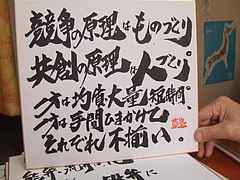 競争の原理はものづくり。
共創の原理は人づくり。
一方は均質大量短時間、
一方は手間ひまかけて
それぞれ不揃い。